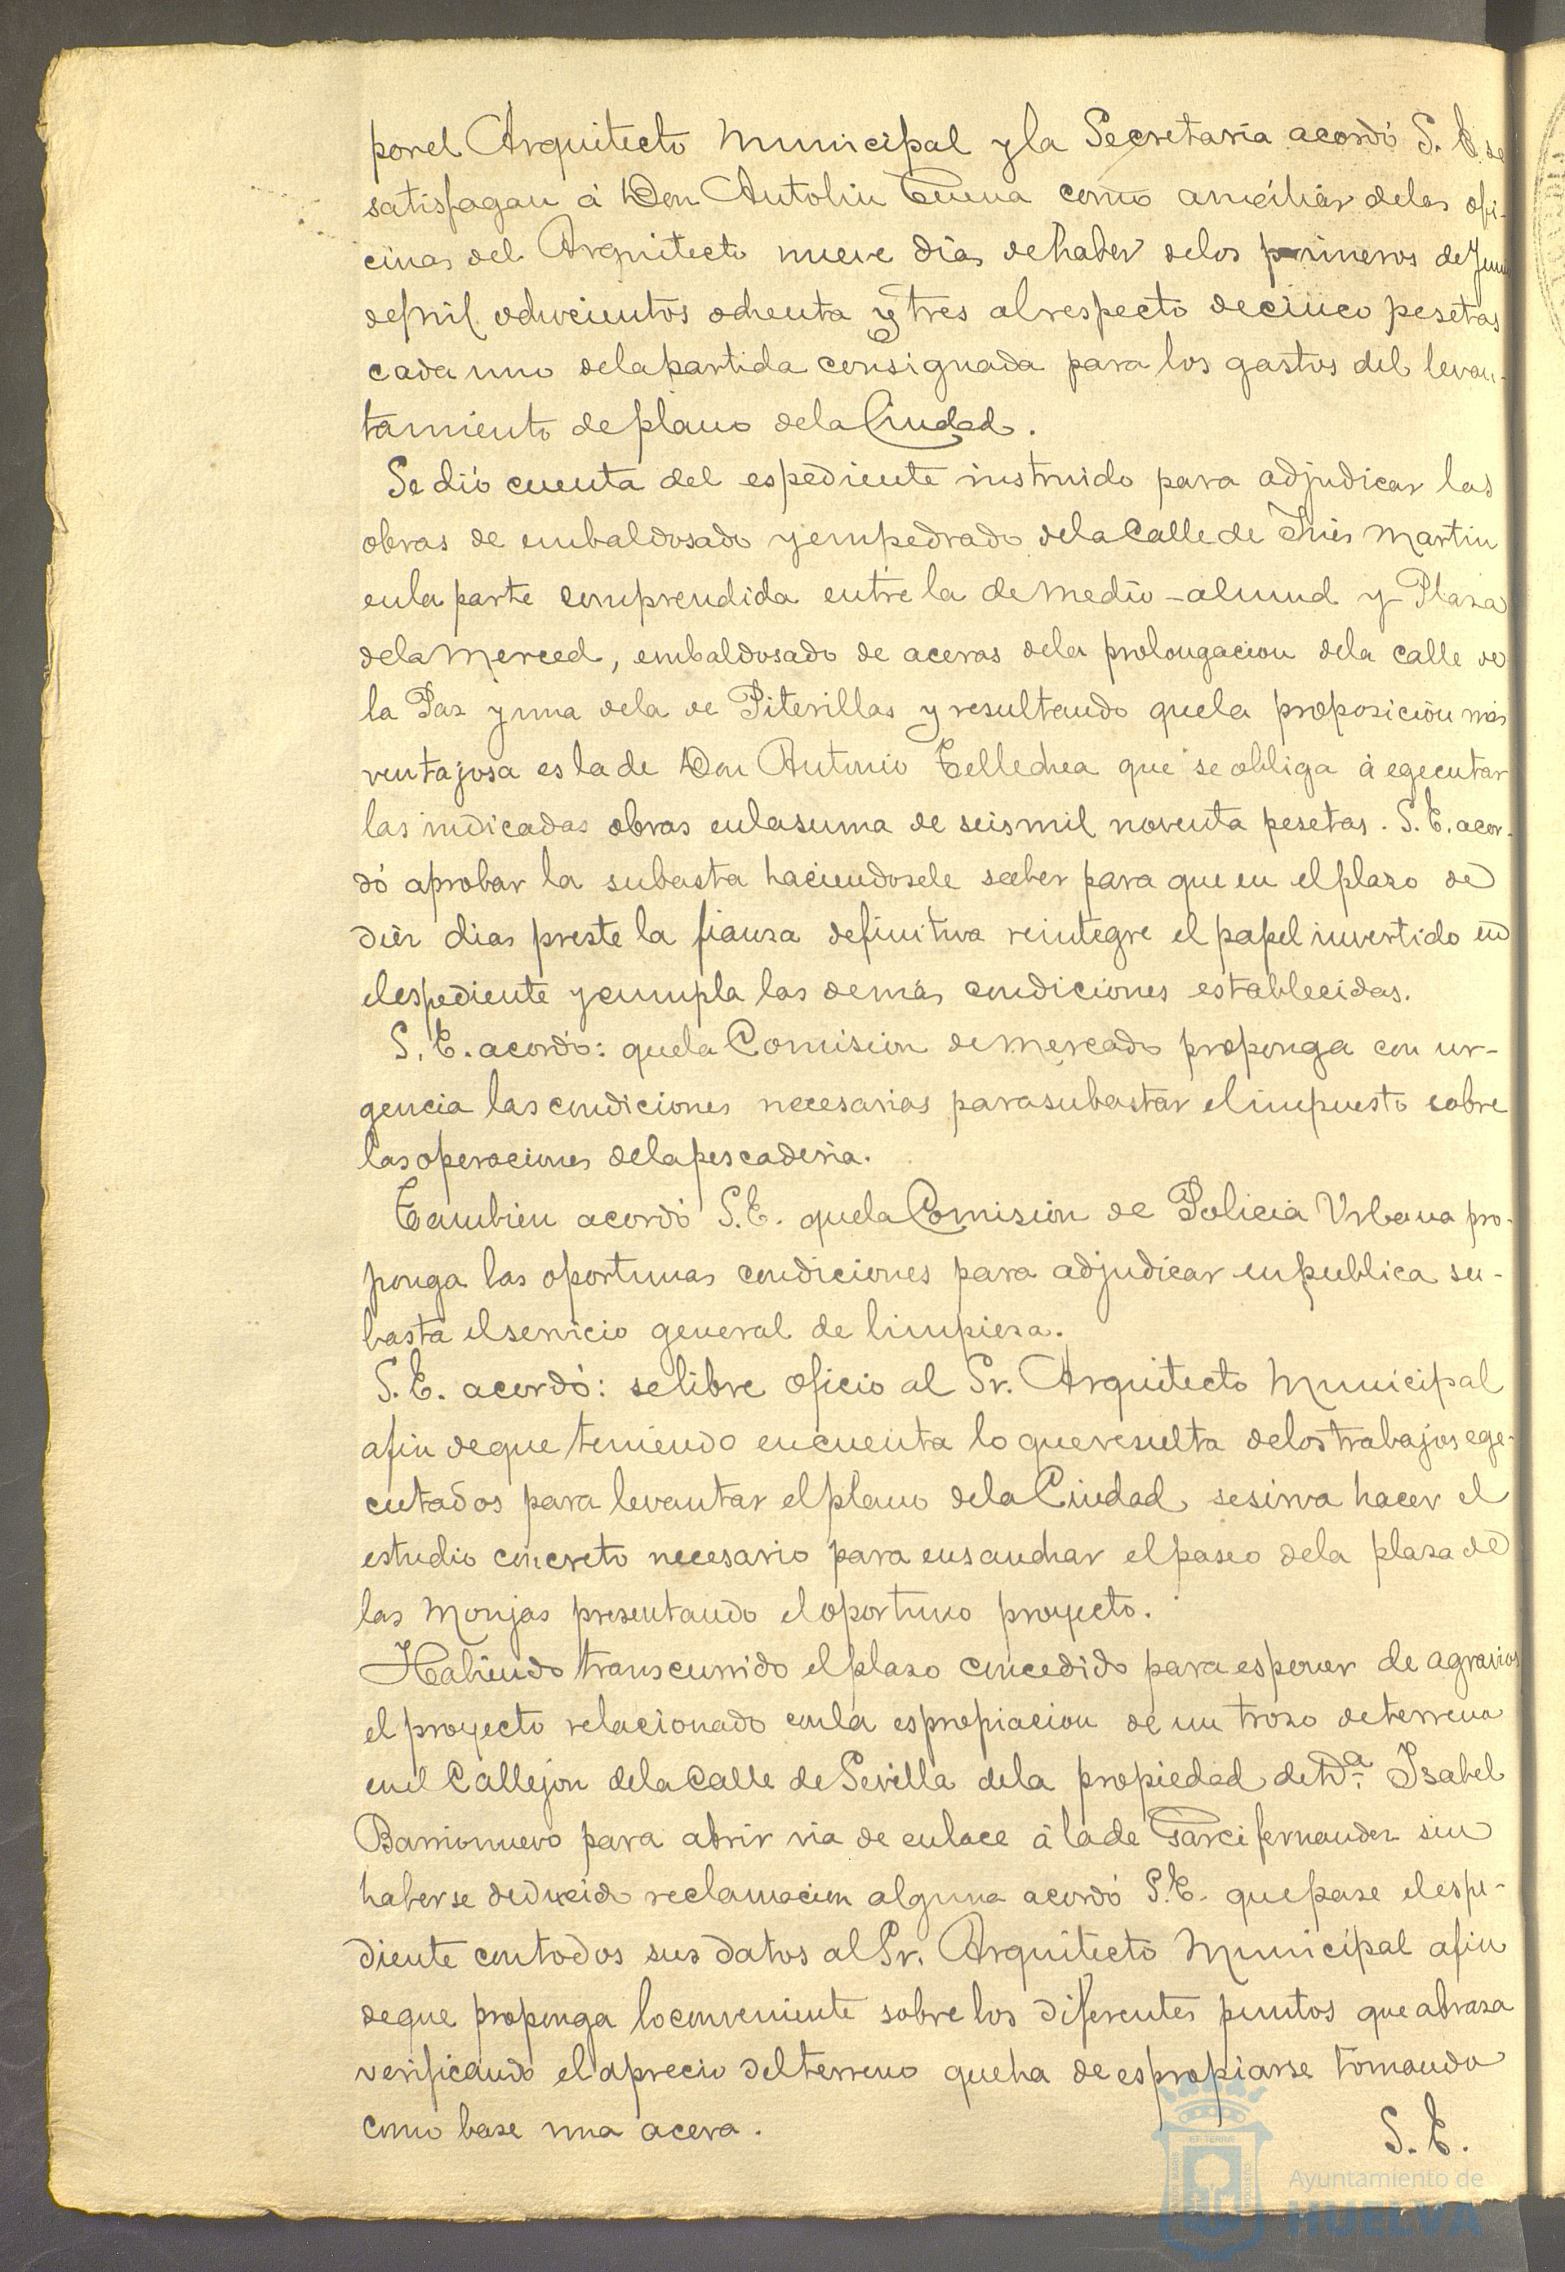 por el Arquitecto Municipal y la Secretaría acordó S. E. se
satisfagan á Don Antolin Cuena como auxiliar de las ofi-
cinas del Arquitecto nueve dias de haber de los primeros de Junio
de mil ochocientos ochenta y tres al respecto de cinco pesetas
cada uno de la partida consignada para los gastos del levan-
tamiento de plano de la Ciudad.
Se dió cuenta del espediente instruido para adjudicar las
obras de embaldosado y empedrado de la Calle de Inés Martin
en la parte comprendida entre la de Medio-almud y Plaza
de la Merced, embaldosado de aceras de la prolongacion de la calle de
la Paz y una de la de Piterillas y resultando que la proposición mas
ventajosa es la de Don Antonio Tellechea que se obliga á egecutar
las indicadas obras en la suma de seis mil noventa pesetas. S. E. acor-
dó aprobar la subasta haciendosele saber para que en el plazo de
diez dias preste la fianza definitiva reintegre el papel invertido en
el espediente y cumpla las demás condiciones establecidas.
S. E. acordó: que la Comision de Mercado proponga con ur-
gencia las condiciones necesarias para subastar el impuesto sobre
las operaciones de la pescaderia.
Tambien acordó S. E. que la Comisión de Policia Urbana pro-
ponga las oportunas condiciones para adjudicar en publica su-
basta el servicio general de limpieza.
S. E. acordó: se libre oficio al Sr. Arquitecto Municipal
afin de que teniendo en cuenta lo que resulta de los trabajos ege-
cutados para levantar el plano de la Ciudad se sirva hacer el
estudio concreto necesario para ensanchar el paseo de la plaza de
las Monjas presentando el oportuno proyecto.
Habiendo transcurrido el plazo concedido para esponer de agravios
el proyecto relacionado con la espropiacion de un trozo de terreno
en el Callejon de la Calle de Sevilla de la propiedad de Dª. Isabel
Barrionuevo para abrir via de enlace á la de Garci fernandez sin
haberse deducido reclamacion alguna acordó S. E. que pase el espe-
diente con todos sus datos al Sr. Arquitecto Municipal afin
de que proponga lo conveniente sobre los diferentes puntos que abraza
verificando el aprecio del terreno que ha de espropiarse tomando
como base una acera.
S. E.
Ayuntamiento de
HUELVA